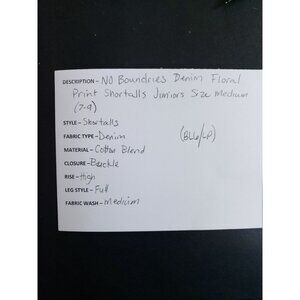 DESCRIPTION - NO Boundries Denim Floral
Print Shortalls Juniors Size Medium
(7-9)
STYLE - Shortalls
FABRIC TYPE - Denim
(BL6/LP)
MATERIAL - Cotton Blend
CLOSURE - Buckle
RISE - High
LEG STYLE - Full
FABRIC WASH - Medium